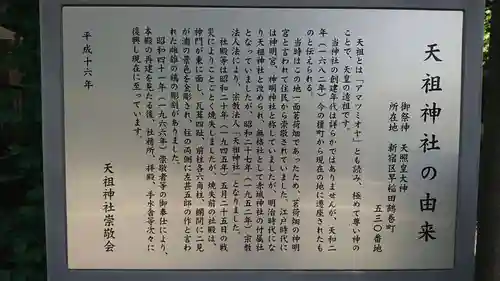 天祖神社の由来
御祭神　天照皇大神
所在地　新宿区早稲田鶴巻町
五三〇番地
天祖とは「アマツミオヤ」とも読み、極めて尊い神の
ことで、天皇の遠祖です。
当神社の創建年代は詳らかではありませんが、天和二
年（一六八二年）、今の榎町から現在の地に遷座されたも
のと伝えられる。
当時はこの地一面茗荷畑であったため、茗荷畑の神明
宮と言われて住民から崇敬されていました。江戸時代に
は神明宮、神明神社と称していましたが、明治時代にな
り天祖神社と改められ、無格社として赤城神社の付属社
となっていましたが、昭和二十七年（一九五二年）宗教
法人法により、宗教法人「天祖神社」となりました。
社殿等は昭和二十年（一九四五年）五月二十五日の戦
災によりことごとく焼失しましたが、焼失前の社殿は、
神門が東に面し、瓦葺四趾、前柱各六角柱、欄間に二見
が浦の景色を金彫され、柱の両側に左甚五郎の作と言わ
れた雌雄の鶏の彫刻がありました。
昭和四十一年（一九六六年）崇敬者等の御奉仕により、
本殿の再建を見たる後、社務所、拝殿、手水舎等次々に
復興し現在に至っています。
平成十六年
天祖神社崇敬会